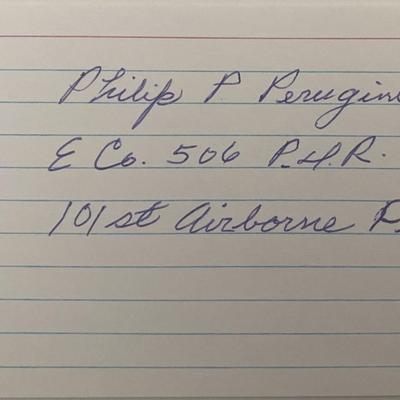 Philip P Perugin
E Co. 506 P.I.R.
101st Airborne